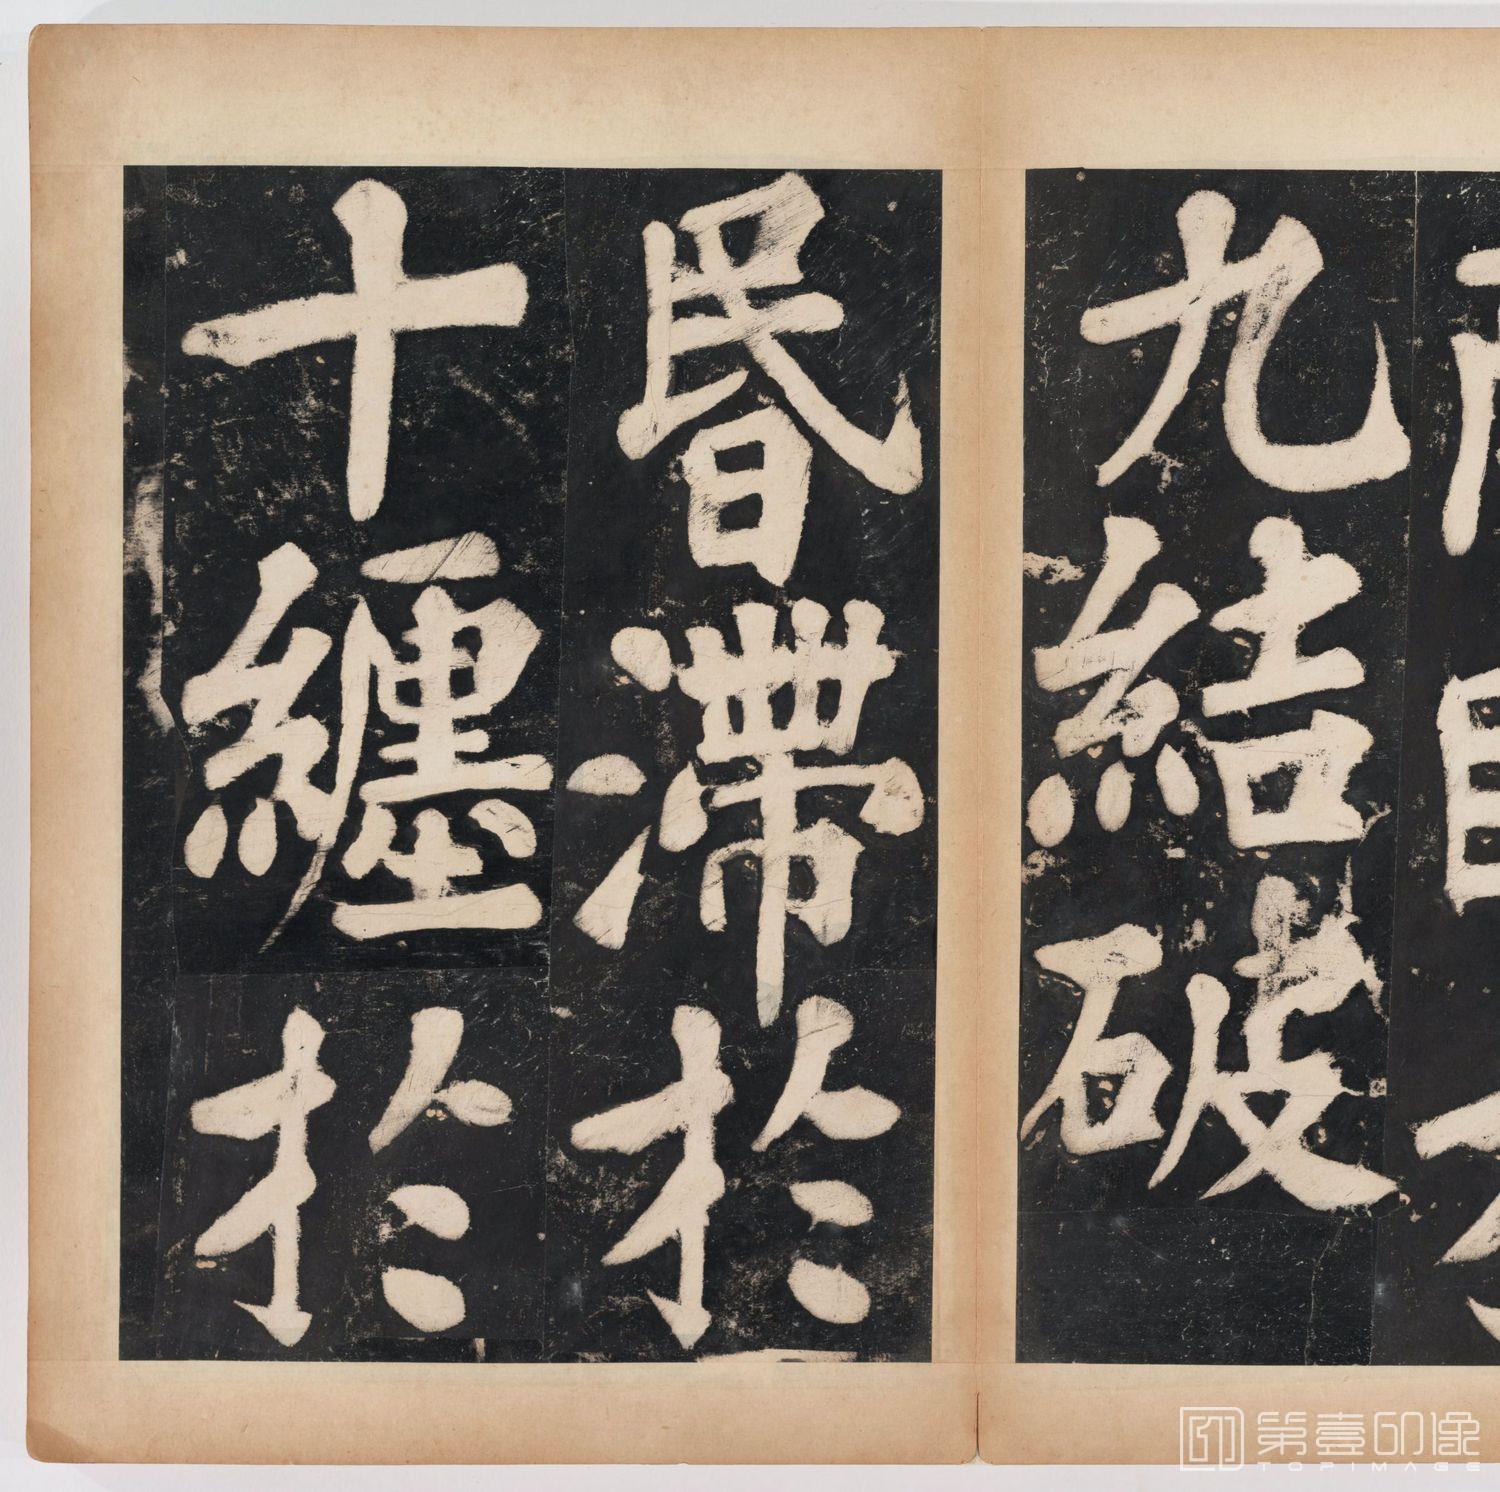 九結破
昬滯於
十纏於
第壹印像
TOPIMAGE